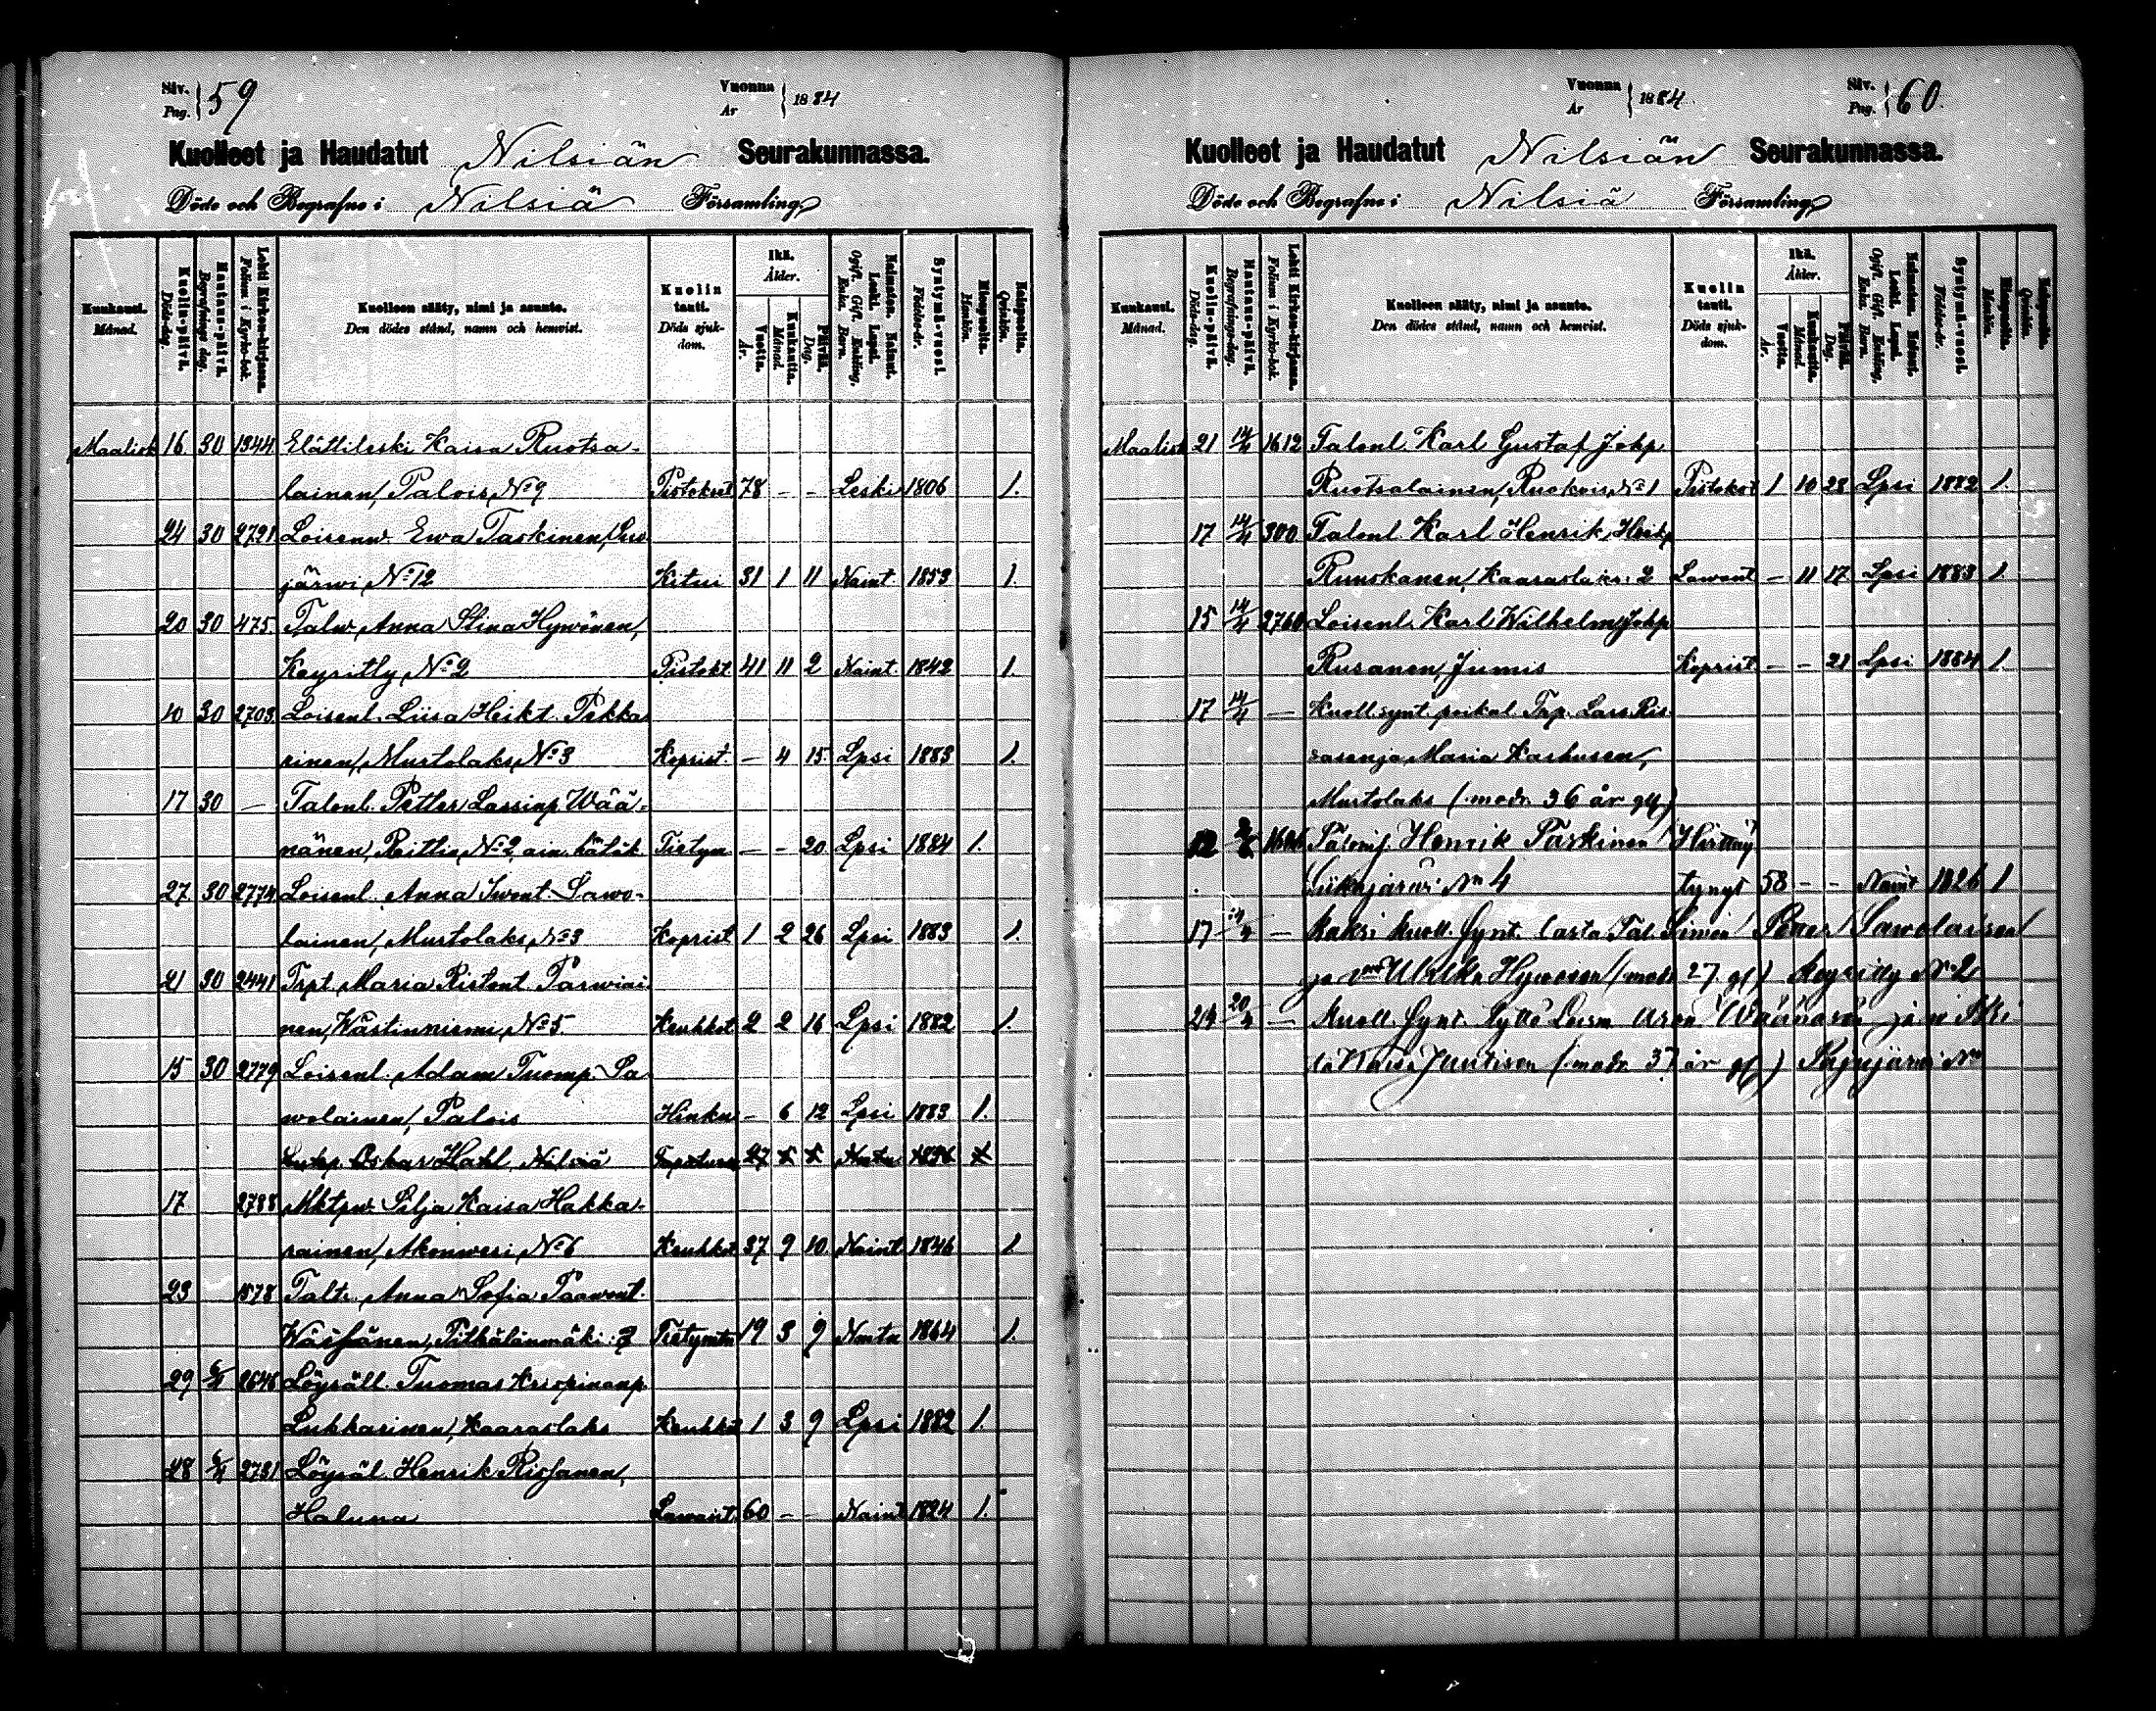 Siv. Pag. 59 Vuonna År 1884
Kuolleet ja Haudatut Nilsiän Seurakunnassa.
Döde och Begrafne i Nilsiä Församling
Kuukausi. Månad. Kuolin-päivä. Döds-dag. Hautaus-päivä. Begrafnings dag. Lehti Kirkon-kirjassa. Folium i Kyrko-bok. Kuolleen sääty, nimi ja asunto. Den dödes stånd, namn och hemvist. Kuolin tauti. Döds sjuk-dom. Ikä. Ålder. Vuotta. År. Kuukautta. Månad. Päivä. Dag. Naimaton. Nainut. Leski. Lapsi. Ogift. Gift. Enkling. Enka. Barn. Syntymä-vuosi. Födelse-år. Miespuolta. Mankön. Vaimopuolta. Qvinkön.
Maalisk 16 30 1344 Elättileski Kaisa Ruotsa-
lainen, Palois, No 9 Pistokset 78 - - Leski 1806 1.
24 30 2791 Loisenw. Ewa Taskinen,
järwi No 12 Kitui 31 1 11 Naint 1853 1.
20 30 475. Talw. Anna Stina Hywönen,
Keyritty No 2 Pistokt 41 11 2 Naint. 1842 1.
10 30 2703 Loisenl. Liisa Heikt. Pekka
rinen, Murtolaks, No 3 Koprist. - 4 15 Lpsi 1883 1.
17 30 — Talonl. Petter Lassinp Wää-
nänen, No 2, ain. hätäk - - 20 Lpsi 1884 1.
27 30 2774 Loisenl. Anna Iwont. Sawo-
lainen, Murtolaks, No 3 Koprist 1 2 26 Lpsi 1883 1.
21 30 2441 Trpt. Maria Ristont Parwiai
nen, Wästinniemi, No 5 Keuhkot 2 2 16 Lpsi 1882 1.
15 30 2779 Loisenl. Adam Tuomp. Sa
wolainen, Palois Hinku - 6 12 Lpsi 1883 1.
Oskar Hahl, Nilsiä 27
17 2788 Mktpw. Silja Kaisa Hakka-
rainen, Akonwesi, No 6 Keuhkot 37 9 10 Naint 1846 1
23 1878 Talt. Anna Sofia Paawont.
Wäisänen, Pitkälänmäki: 3 19 3 9 Nmtn 1864 1.
29 6/4 2646 Löysäll. Tuomas
Lukkarinen, Kaaraslaks Keuhkot 1 3 9 Lpsi 1882 1.
28 6/4 2731 Löysäl. Henrik Rissanen,
Haluna Lawant. 60 - - Naint 1824 1.
Vuonna År 1884 Siv. Pag. 60.
Kuolleet ja Haudatut Nilsiän Seurakunnassa.
Döde och Begrafne i Nilsiä Församling
Kuukausi. Månad. Kuolin-päivä. Döds-dag. Hautaus-päivä. Begrafnings-dag. Lehti Kirkon-kirjassa. Folium i Kyrko-bok. Kuolleen sääty, nimi ja asunto. Den dödes stånd, namn och hemvist. Kuolin tauti. Döds sjuk-dom. Ikä. Ålder. Vuotta. År. Kuukautta. Månad. Päivä. Dag. Naimaton. Nainut. Leski. Lapsi. Ogift. Gift. Enkling. Enka. Barn. Syntymä-vuosi. Födelse-år. Miespuolta. Mankön. Vaimopuolta. Qvinkön.
Maalisk 21 14/4 1612 Talonl. Karl Gustaf Johp
Ruotsalainen, No 1 Pistokst 1 10 28 Lpsi 1882 1.
17 14/4 300 Talonl. Karl Henrik, Heikp
Ruuskanen, 2 Lawant - 11 17 Lpsi 1883 1.
15 14/4 2760 Loisenl. Karl Wilhelm, Johp
Rusanen, Jumis Koprist. - - 21 Lpsi 1884 1.
17 14/4 — Kuoll. synt. poikal. Trp. Lars Ris
sasen ja Maria Karhusen,
Murtolaks (modr. 36 år gl.)
12 Henrik Taskinen Hirttäy
No 4 tynyt 58 - - Naint 1826 1
17 14/4 — Kaksi kuoll. synt. lasta Tal. Simon Petter Sawolaisen
ja Ulrika Hywösen (modr 27. gl) Keyritty No 2
24 20/4 — Kuoll. synt. tyttö Wäänänen ja
Kaisa Juntisen (modr. 37 år gl)